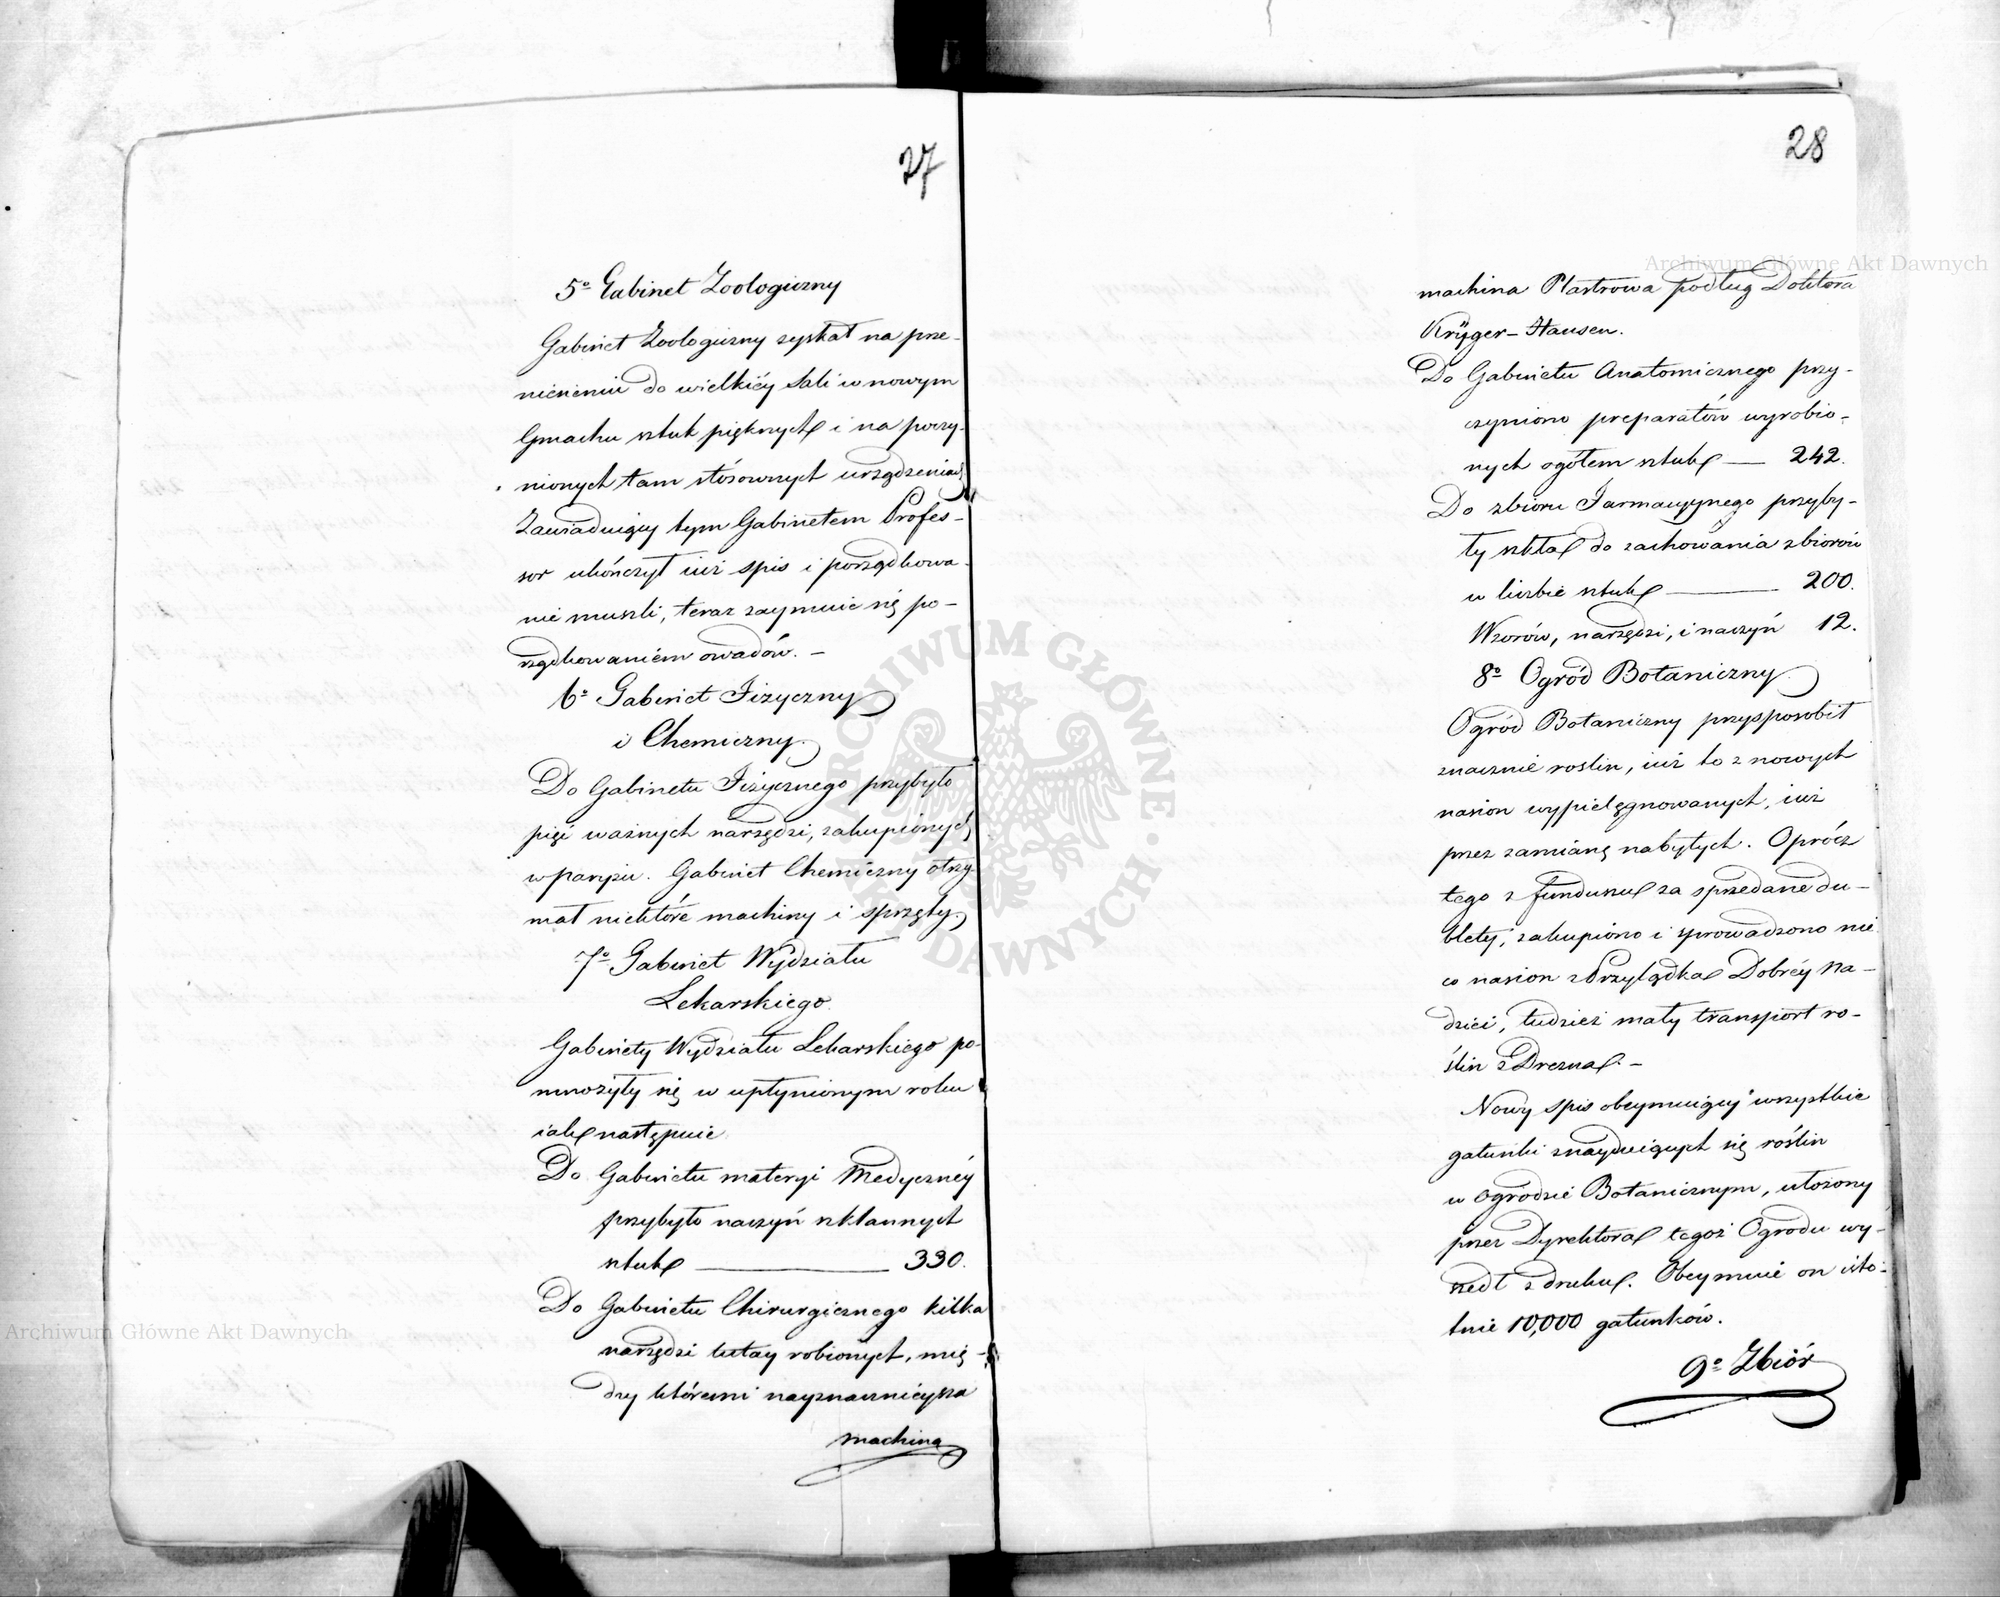 27
5º Gabinet Zoologiczny
Gabinet Zoologiczny zyskał na prze-
niesieniu do wielkiéy Sali w nowym
Gmachu sztuk pięknych i na poczy-
nionych tam stósownych urządzeniach
Zawiaduiący tym Gabinetem Profes-
sor ukończył iuż spis i porządkowa-
nie muszli, teraz zaymuie się po-
rządkowaniem owadów. -
6º Gabinet Fizyczny
i Chemiczny.
Do Gabinetu Fizycznego przybyło
pięć ważnych narzędzi, zakupionych
w Paryżu. Gabinet Chemiczny otrzy-
mał niektóre machiny i sprzęty.
7º Gabinet Wydziału
Lekarskiego.
Gabinety Wydziału Lekarskiego po-
mnożyły się w upłynionym roku
iak następuie
Do Gabinetu materyi Medycznéy
przybyło naczyń szklannych
sztuk — 330.
Do Gabinetu Chirurgicznego kilka
narzędzi tutay robionych, mię-
dzy któremi nayznacznieysza
machina
28
machina Plastrowa podług Doktora
Krÿger-Hausen.
Do Gabinetu Anatomicznego przy-
czyniono preparatów wyrobio-
nych ogółem sztuk — 242.
Do zbioru Farmacyynego przyby-
ły szkła do zachowania zbiorów
w liczbie sztuk — 200.
Wzorów, narzędzi, i naczyń 12.
8º Ogród Botaniczny.
Ogród Botaniczny przysposobił
znacznie roslin, iuż to z nowych
nasion wypielęgnowanych, iuż
przez zamianę nabytych. Oprócz
tego z funduszu za sprzedane du-
blety, zakupiono i sprowadzono nie
co nasion z Przylądka Dobréy Na-
dziei, tudzież mały transport ro-
ślin z Drezna. -
Nowy spis obeymuiący wszystkie
gatunki znayduiących się roślin
w Ogrodzie Botanicznym, ułożony
przez Dyrektora tegoż Ogrodu wy-
szedł z druku. Obeymuie on isto-
tnie 10,000 gatunków.
9º Zbiór
Archiwum Główne Akt Dawnych
Archiwum Główne Akt Dawnych
ARCHIWUM GŁÓWNE AKT DAWNYCH